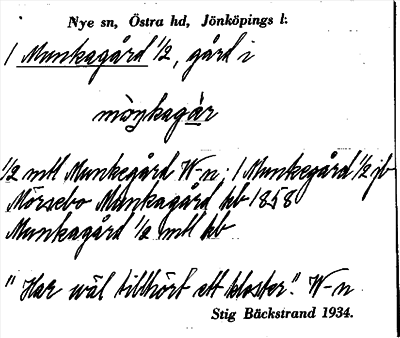 Nye sn, Östra hd, Jönköpings l:
1 Munkagård 1/2, gård i
mòŋkagàr
1/2 mtl Munkegård W-n; 1 Munkegård 1/2 jb
Mörsebo Munkagård kb 1858
Munkagård 1/2 mtl kb
"Har wäl tillhört ett kloster". W-n
Stig Bäckstrand 1934.